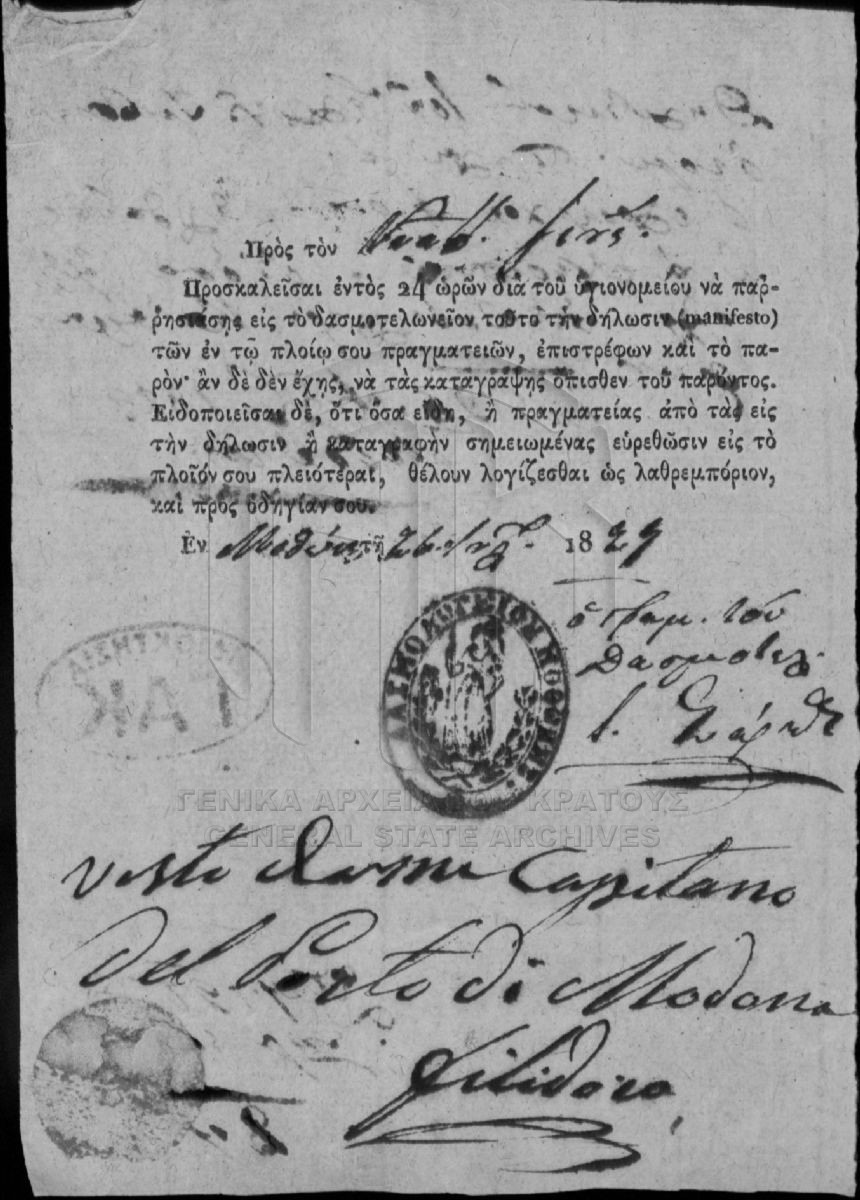 Πρὸς τὸν
Προσκαλεῖσαι ἐντὸς 24 ὡρῶν διὰ τοῦ ὑγιονομείου νὰ παῤ-
ῥησιάσῃς εἰς τὸ δασμοτελωνεῖον τοῦτο τὴν δήλωσιν (manifesto)
τῶν ἐν τῷ πλοίῳ σου πραγματειῶν, ἐπιστρέφων καὶ τὸ πα-
ρόν· ἂν δὲ δὲν ἔχῃς, νὰ τὰς καταγράψῃς ὄπισθεν τοῦ παρόντος.
Εἰδοποιεῖσαι δὲ, ὅτι ὅσα εἴδη, ἢ πραγματείας ἀπὸ τὰς εἰς
τὴν δήλωσιν ἢ καταγραφὴν σημειωμένας εὑρεθῶσιν εἰς τὸ
πλοῖόν σου πλειότεραι, θέλουν λογίζεσθαι ὡς λαθρεμπόριον,
καὶ πρὸς ὁδηγίαν σου.
Ἐν Μοθώνῃ τῇ 26 1829
ὁ γραμ. τοῦ
Δασμοτελ.
ΔΑΣΜΟΛΟΓΕΙΟΥ ΜΟΘΩΝΗΣ
ΙΔΙΟΚΤΗΣΙΑ
ΓΑΚ
ΓΕΝΙΚΑ ΑΡΧΕΙΑ ΤΟΥ ΚΡΑΤΟΥΣ
GENERAL STATE ARCHIVES
Capitano
del Porto di Modona